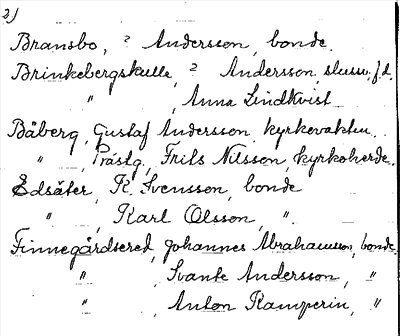 2)
Bransbo, ? Andersson, bonde.
Brinkebergskulle, ? Andersson, slussv. f.d.
" , Anna Lindkvist
Båberg, Gustaf Andersson, kyrkovaktm.
" , Prästg., Frits Nilsson, kyrkoherde.
Edsäter, K. Svensson, bonde
" , Karl Olsson, ".
Finnegårdsered, Johannes Abrahamsson, bonde.
" , Svante Andersson, "
" , Anton Kamperin, "